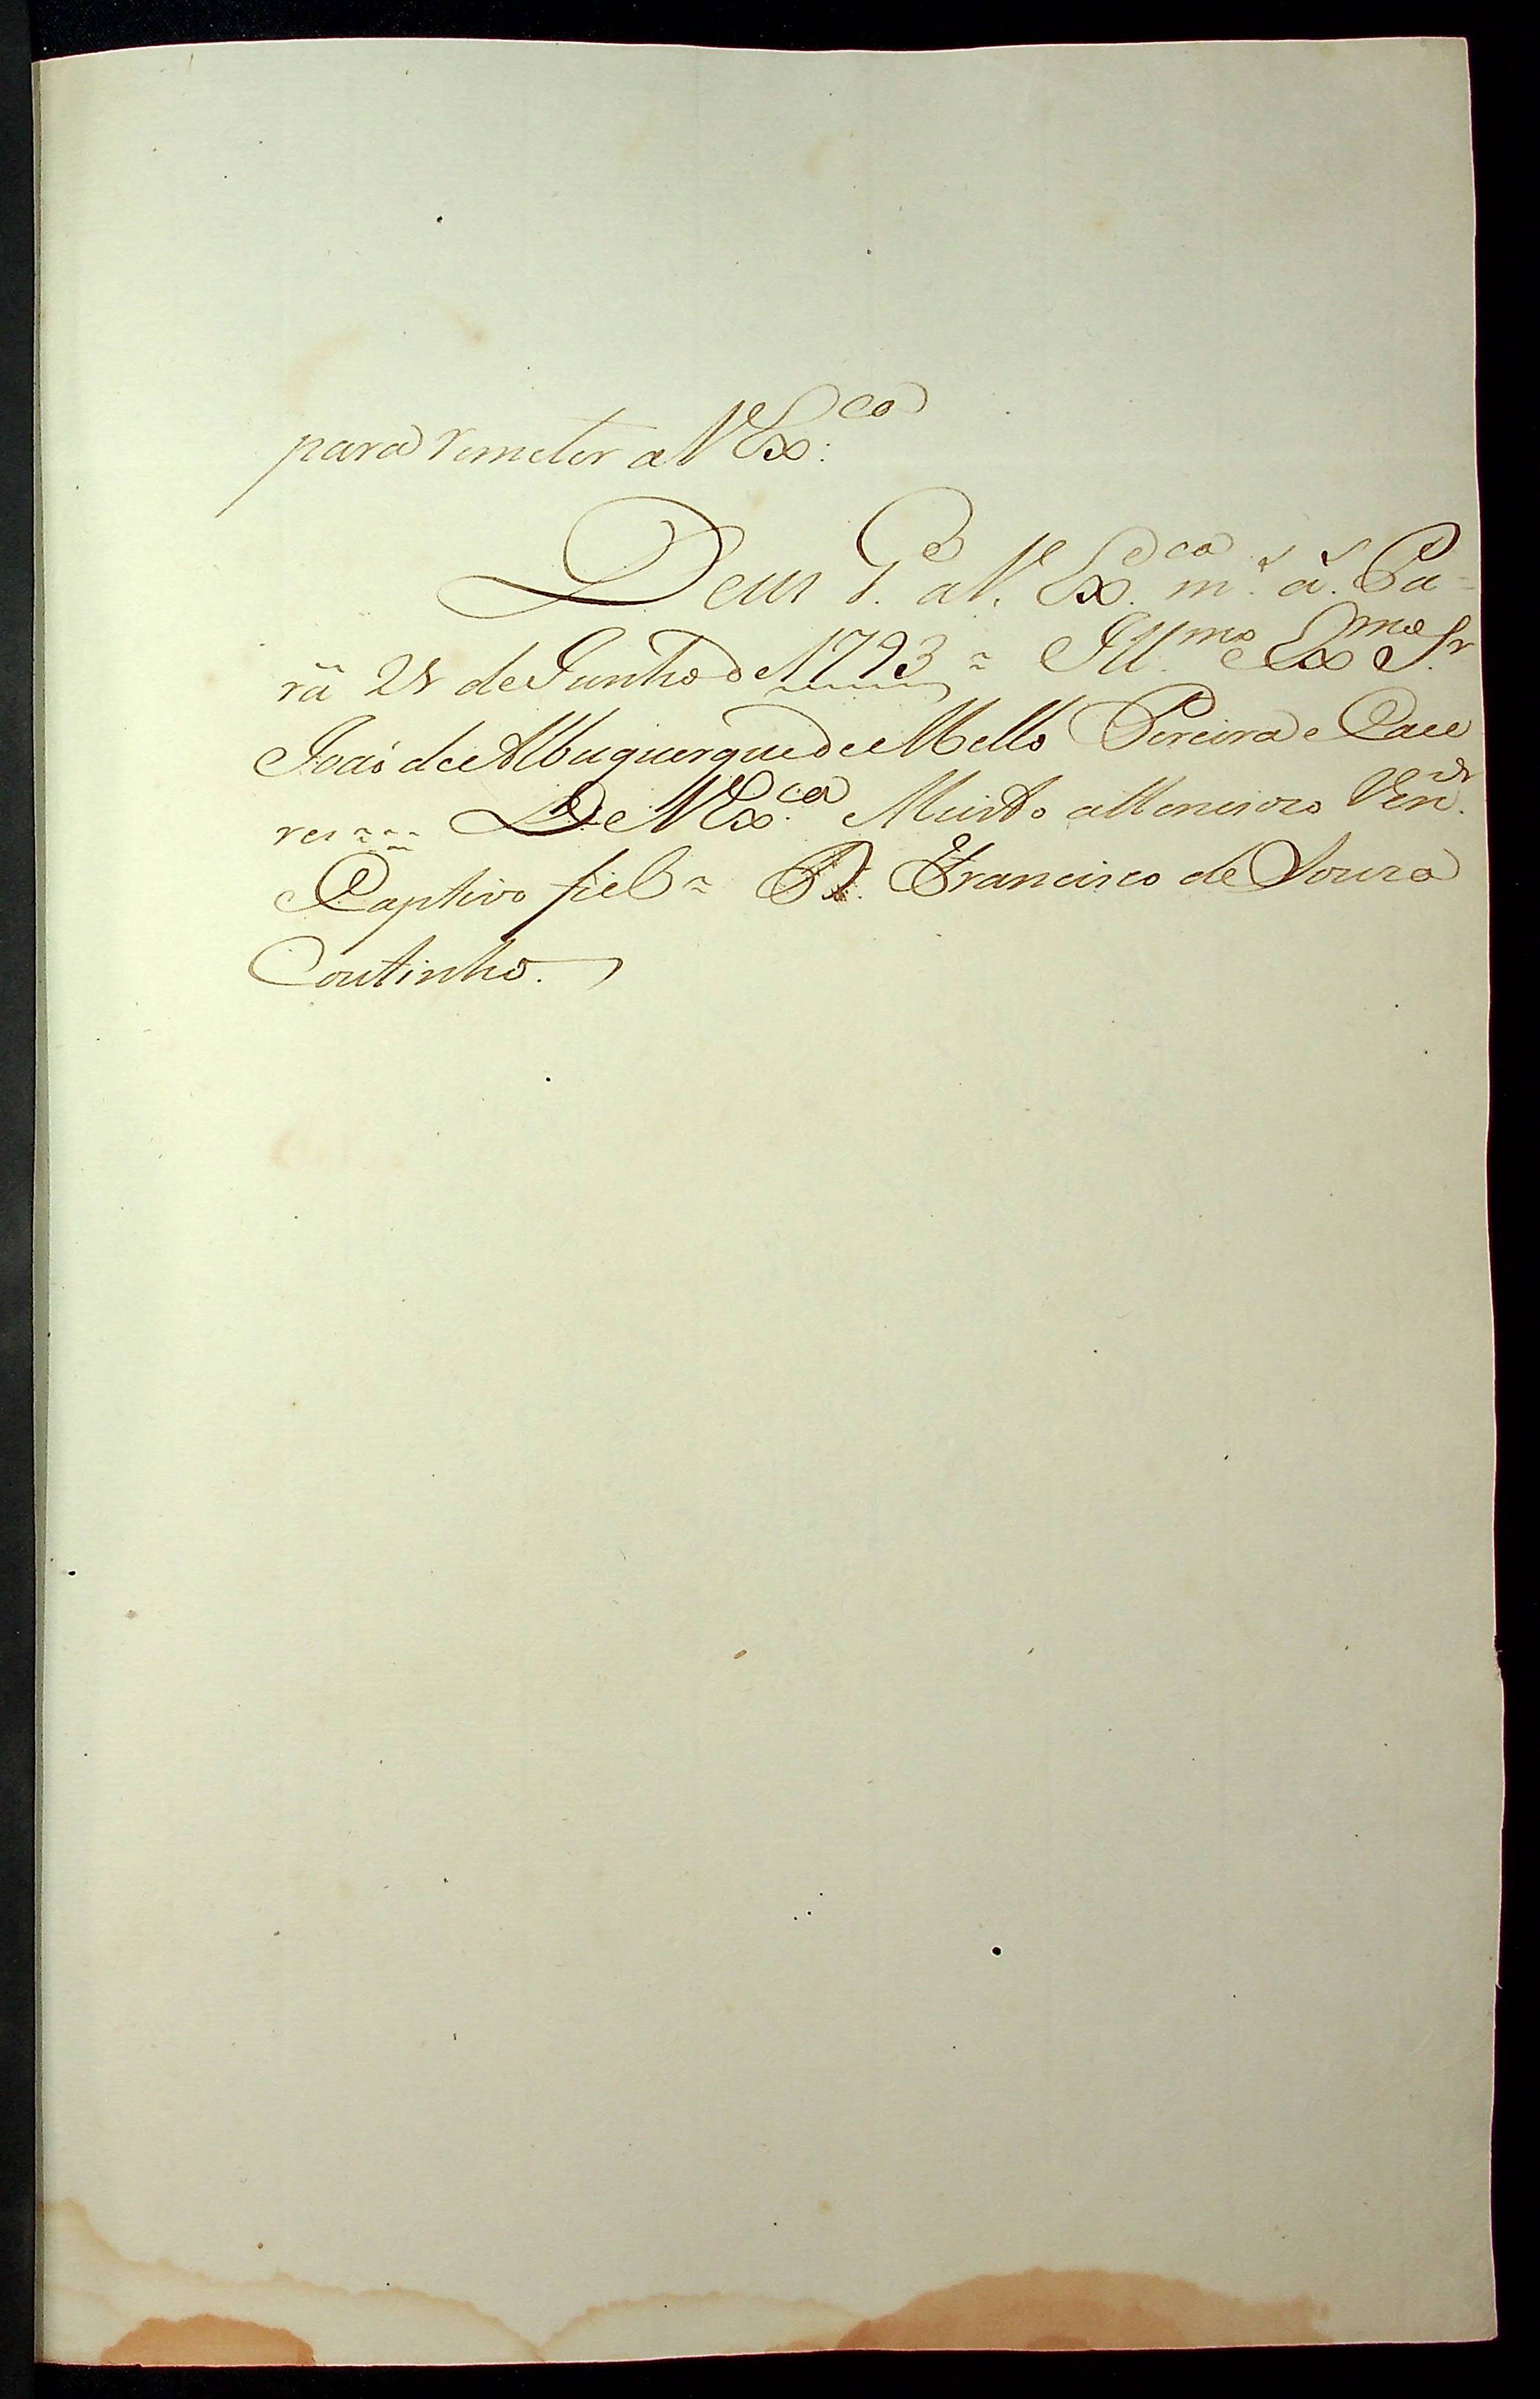 para remeter a V Ex.ca
Deus G.e a V. Ex.ca m.s a.s Pa=
rá 28 de Junho de 1793 ~ Ill.mo e Ex.mo S.r
João de Albuquerque de Mello Pereira e Cace
res ~~~ De V Ex.ca Muito attencioso Ven.dr
e Captivo fiel ~ D. Francisco de Souza
Coutinho.